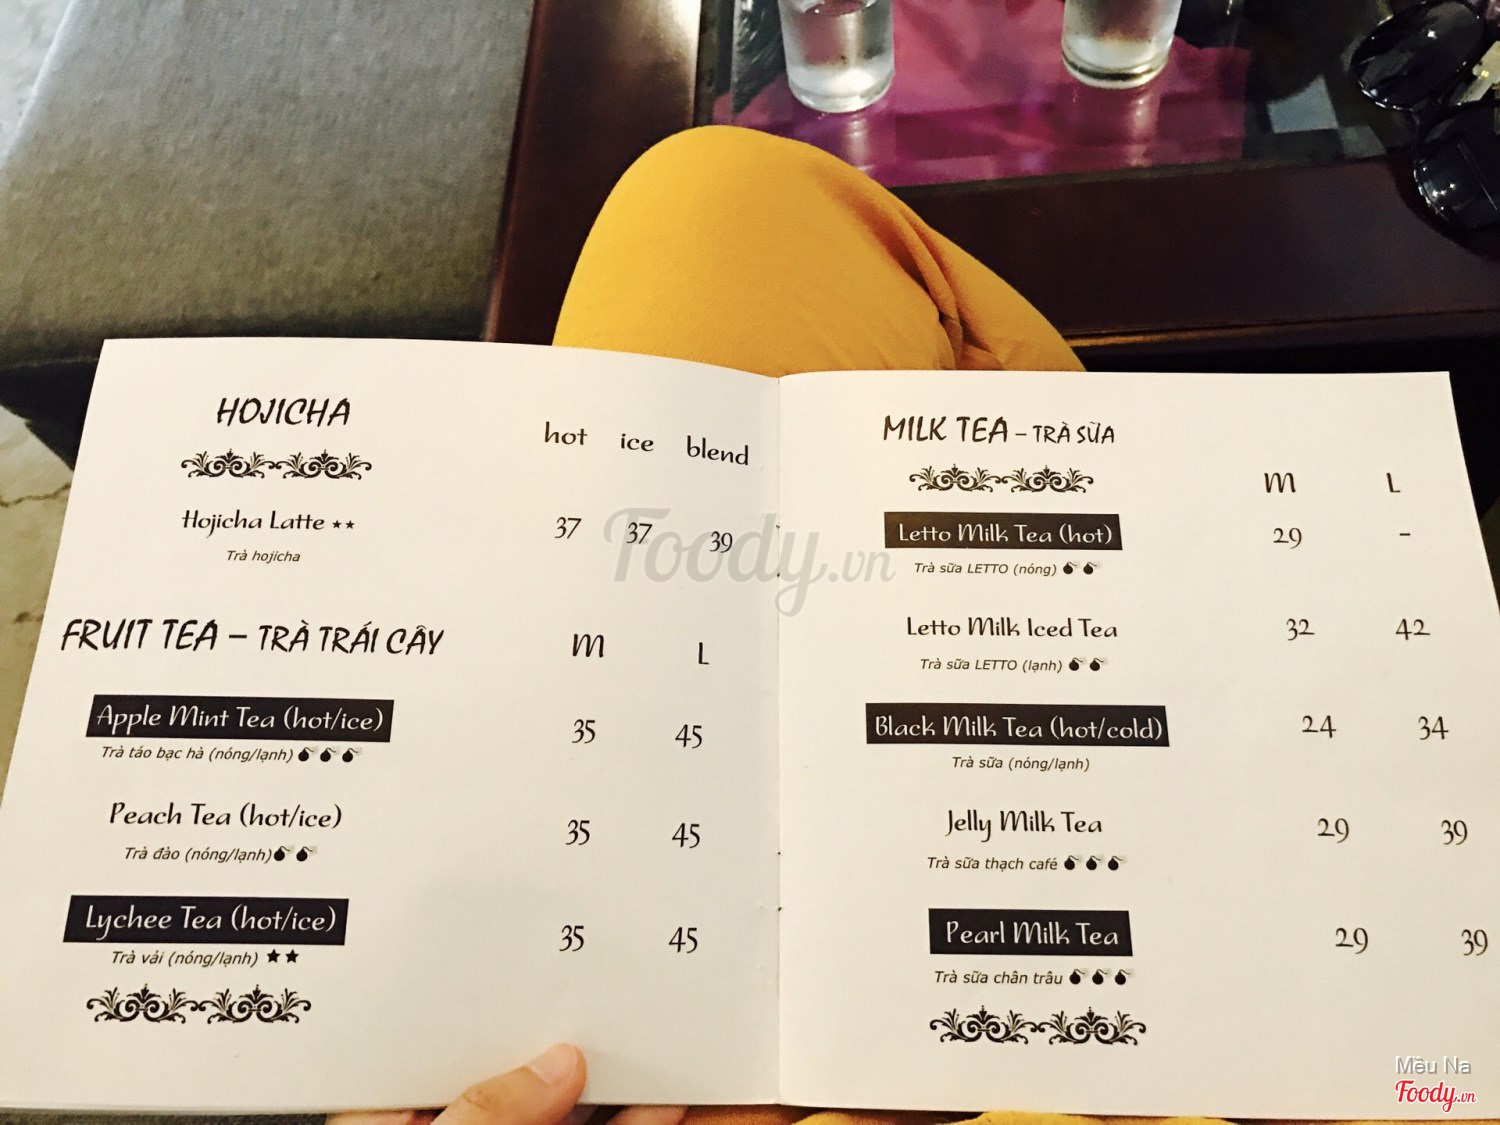 HOJICHA
hot ice blend
Hojicha Latte 37 37 39
Trà hojicha
FRUIT TEA – TRÀ TRÁI CÂY M L
Apple Mint Tea (hot/ice) 35 45
Trà táo bạc hà (nóng/lạnh)
Peach Tea (hot/ice) 35 45
Trà đào (nóng/lạnh)
Lychee Tea (hot/ice) 35 45
Trà vải (nóng/lạnh)
MILK TEA – TRÀ SỮA
M L
Letto Milk Tea (hot) 29 -
Trà sữa LETTO (nóng)
Letto Milk Iced Tea 32 42
Trà sữa LETTO (lạnh)
Black Milk Tea (hot/cold) 24 34
Trà sữa (nóng/lạnh)
Jelly Milk Tea 29 39
Trà sữa thạch café
Pearl Milk Tea 29 39
Trà sữa chân trâu
Foody.vn
Mều Na
Foody.vn